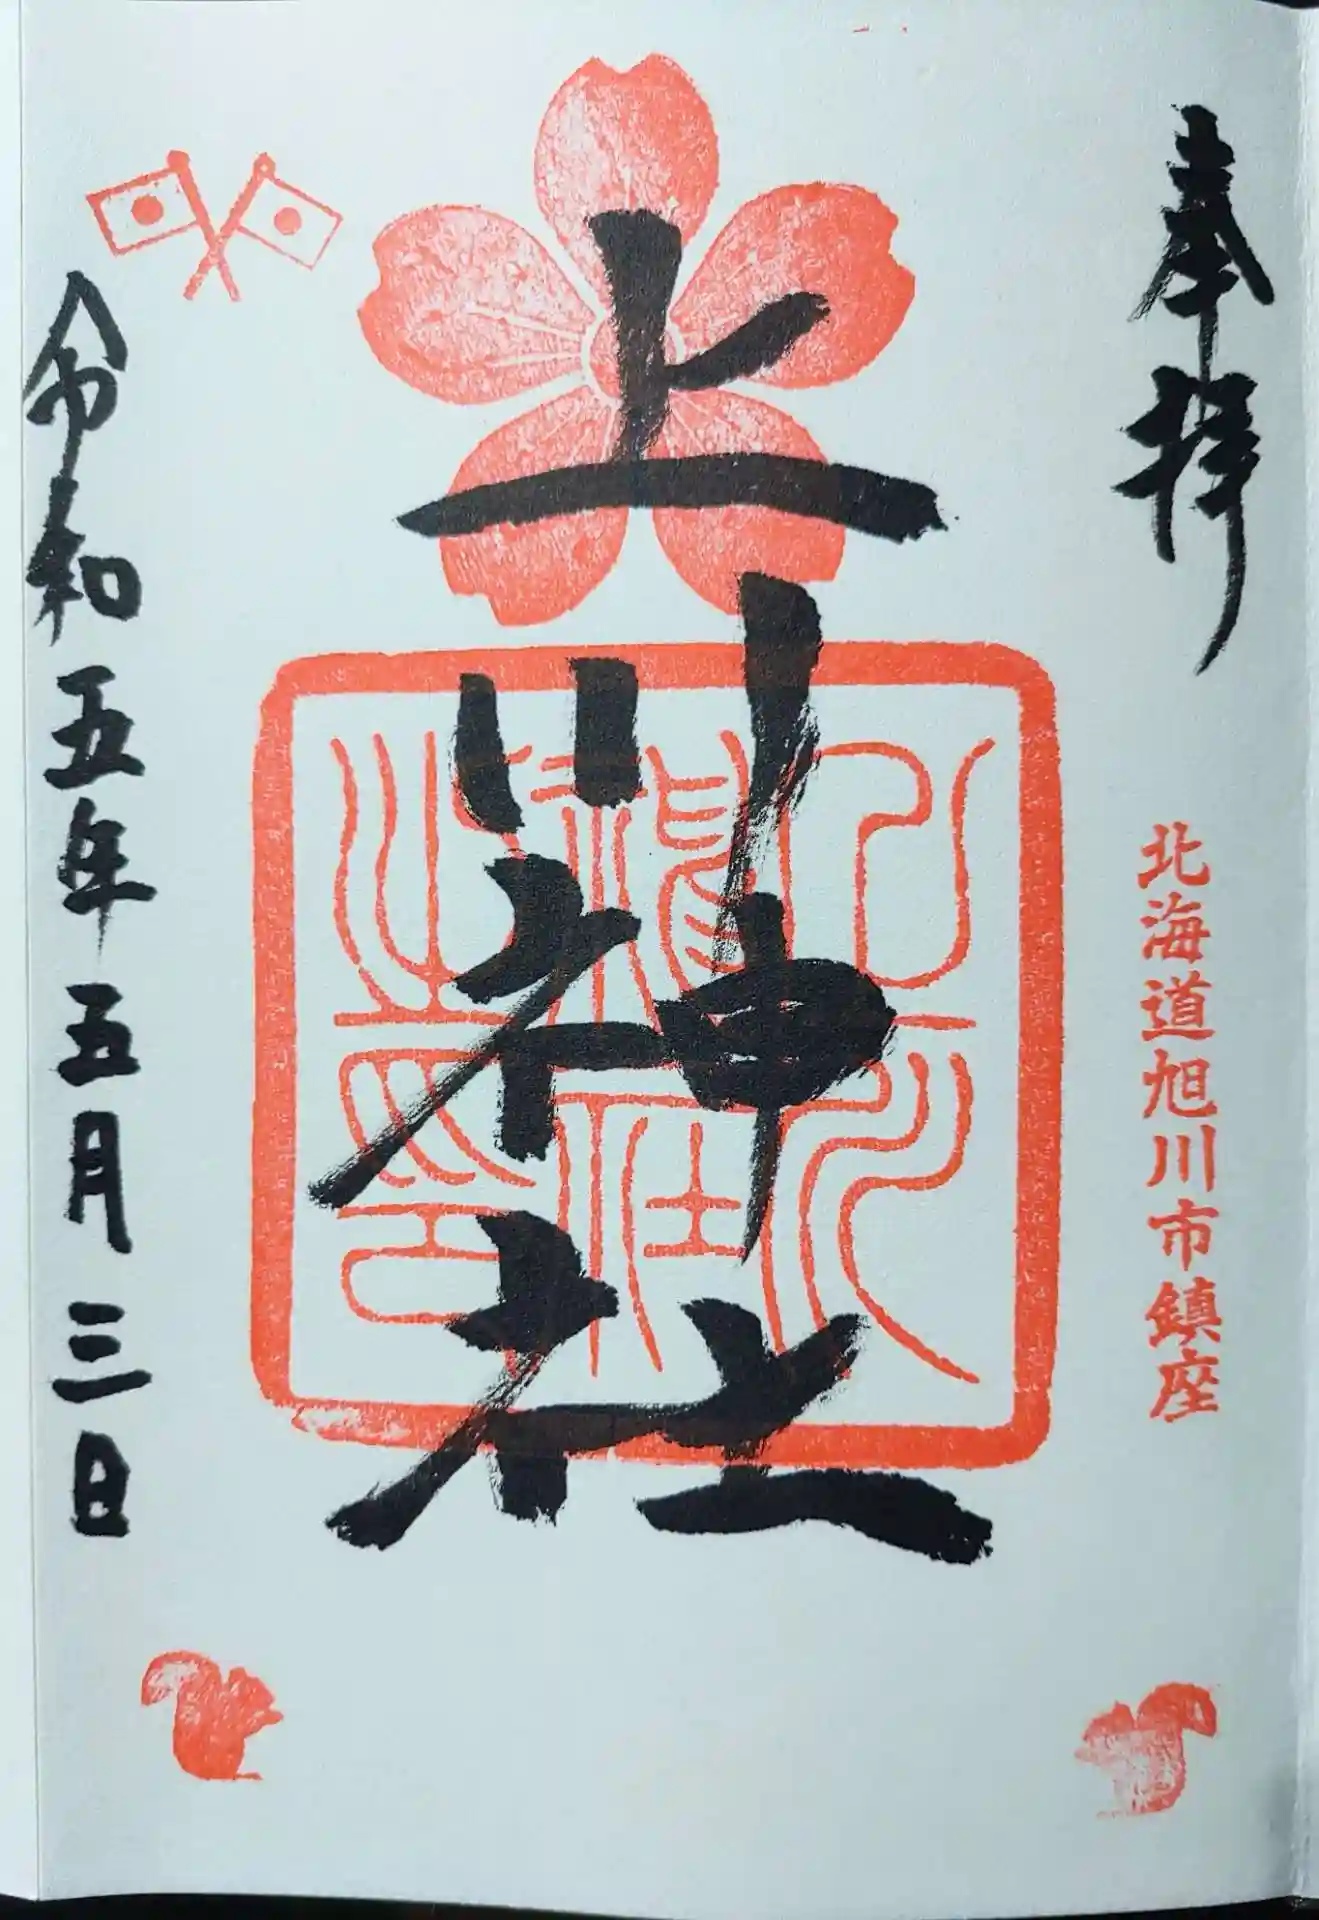 奉拝
北海道旭川市鎮座
上川神社
上川神社之印
令和五年五月三日